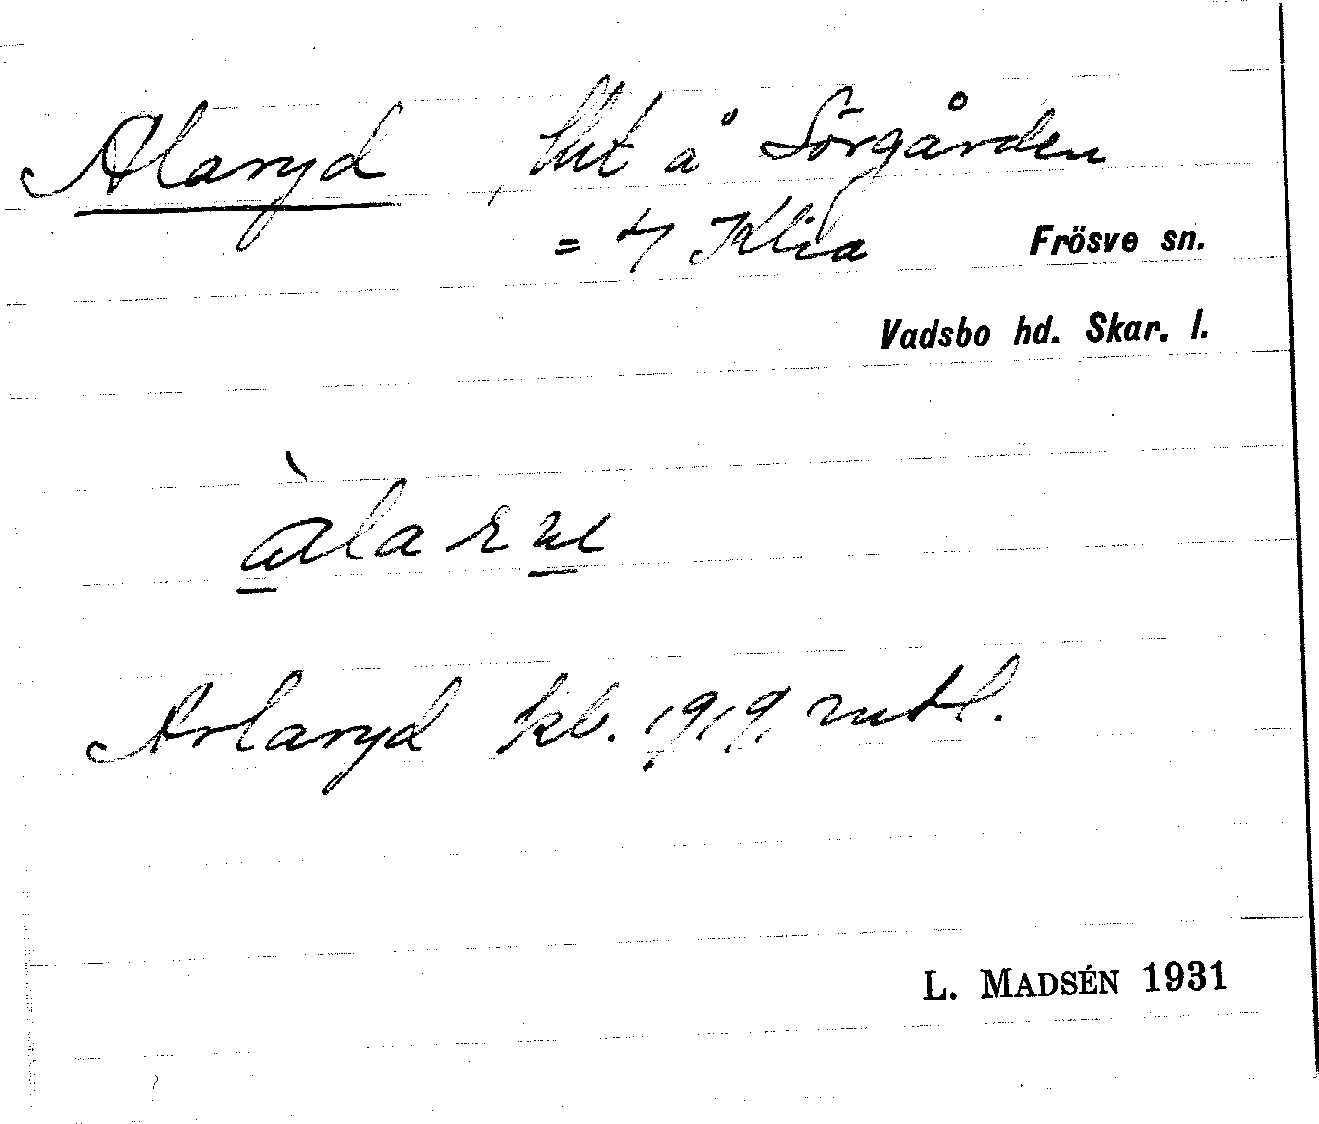 Alaryd, lht å Sörgården
= 4/ Klia Frösve sn.
Vadsbo hd. Skar. l.
àla
Arlaryd kb. 1919, mtl.
L. MADSÉN 1931